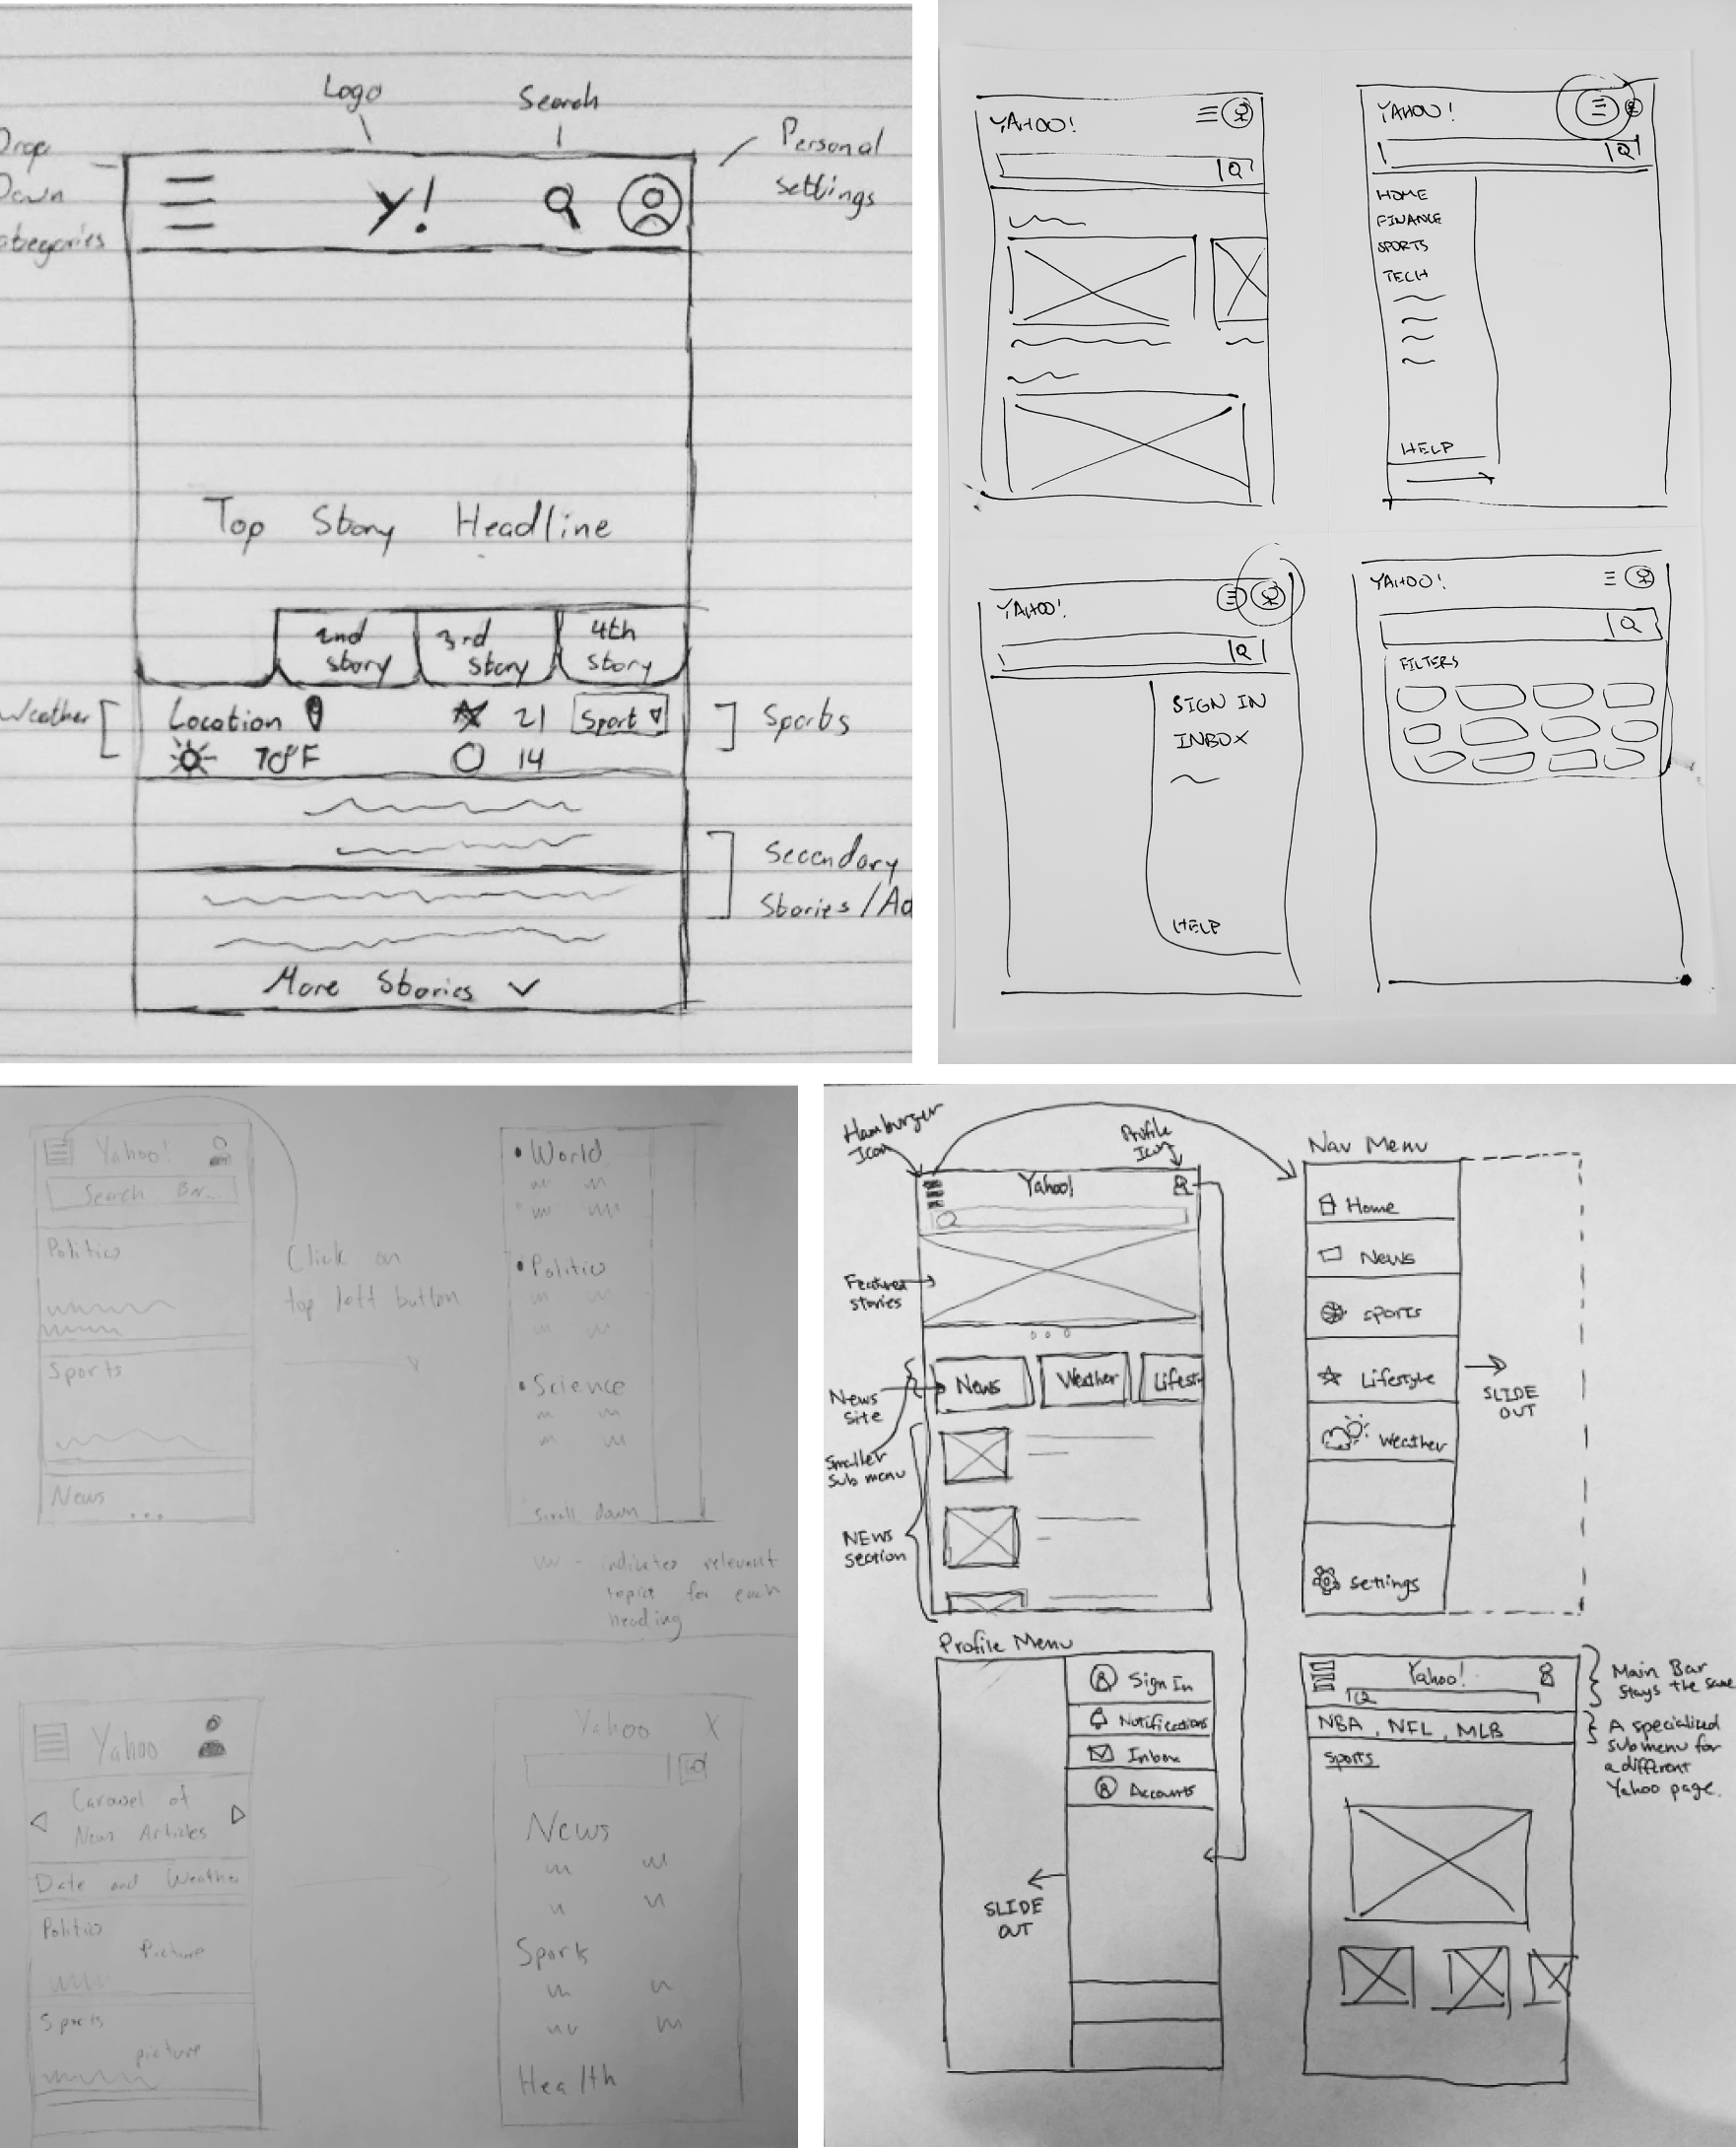 Logo
Search
Drop
Down
Categories
Personal
settings
Y!
Top Story Headline
2nd
story
3rd
story
4th
story
Weather
Location
21
Sport
Sports
70°F
14
Secondary
Stories/Ad
More Stories
YAHOO!
YAHOO!
HOME
FINANCE
SPORTS
TECH
HELP
YAHOO!
SIGN IN
INBOX
HELP
YAHOO!
FILTERS
Yahoo!
Search Bar...
Politics
Sports
News
...
Click on
top left button
World
Politics
Science
Scroll down
indicates relevant
topics for each
heading
Yahoo
Carousel of
News Articles
Date and Weather
Politics
Picture
Sports
picture
Yahoo X
GO
News
Sports
Health
Hamburger
Icon
Profile
Icon
Yahoo!
Featured
stories
News
Weather
Lifest
News
site
Smaller
sub menu
NEWS
section
Nav Menu
Home
News
Sports
Lifestyle
Weather
Settings
SLIDE
OUT
Profile Menu
Sign In
Notifications
Inbox
Accounts
SLIDE
OUT
Yahoo!
NBA, NFL, MLB
Sports
Main Bar
stays the same
A specialized
submenu for
a different
Yahoo page.